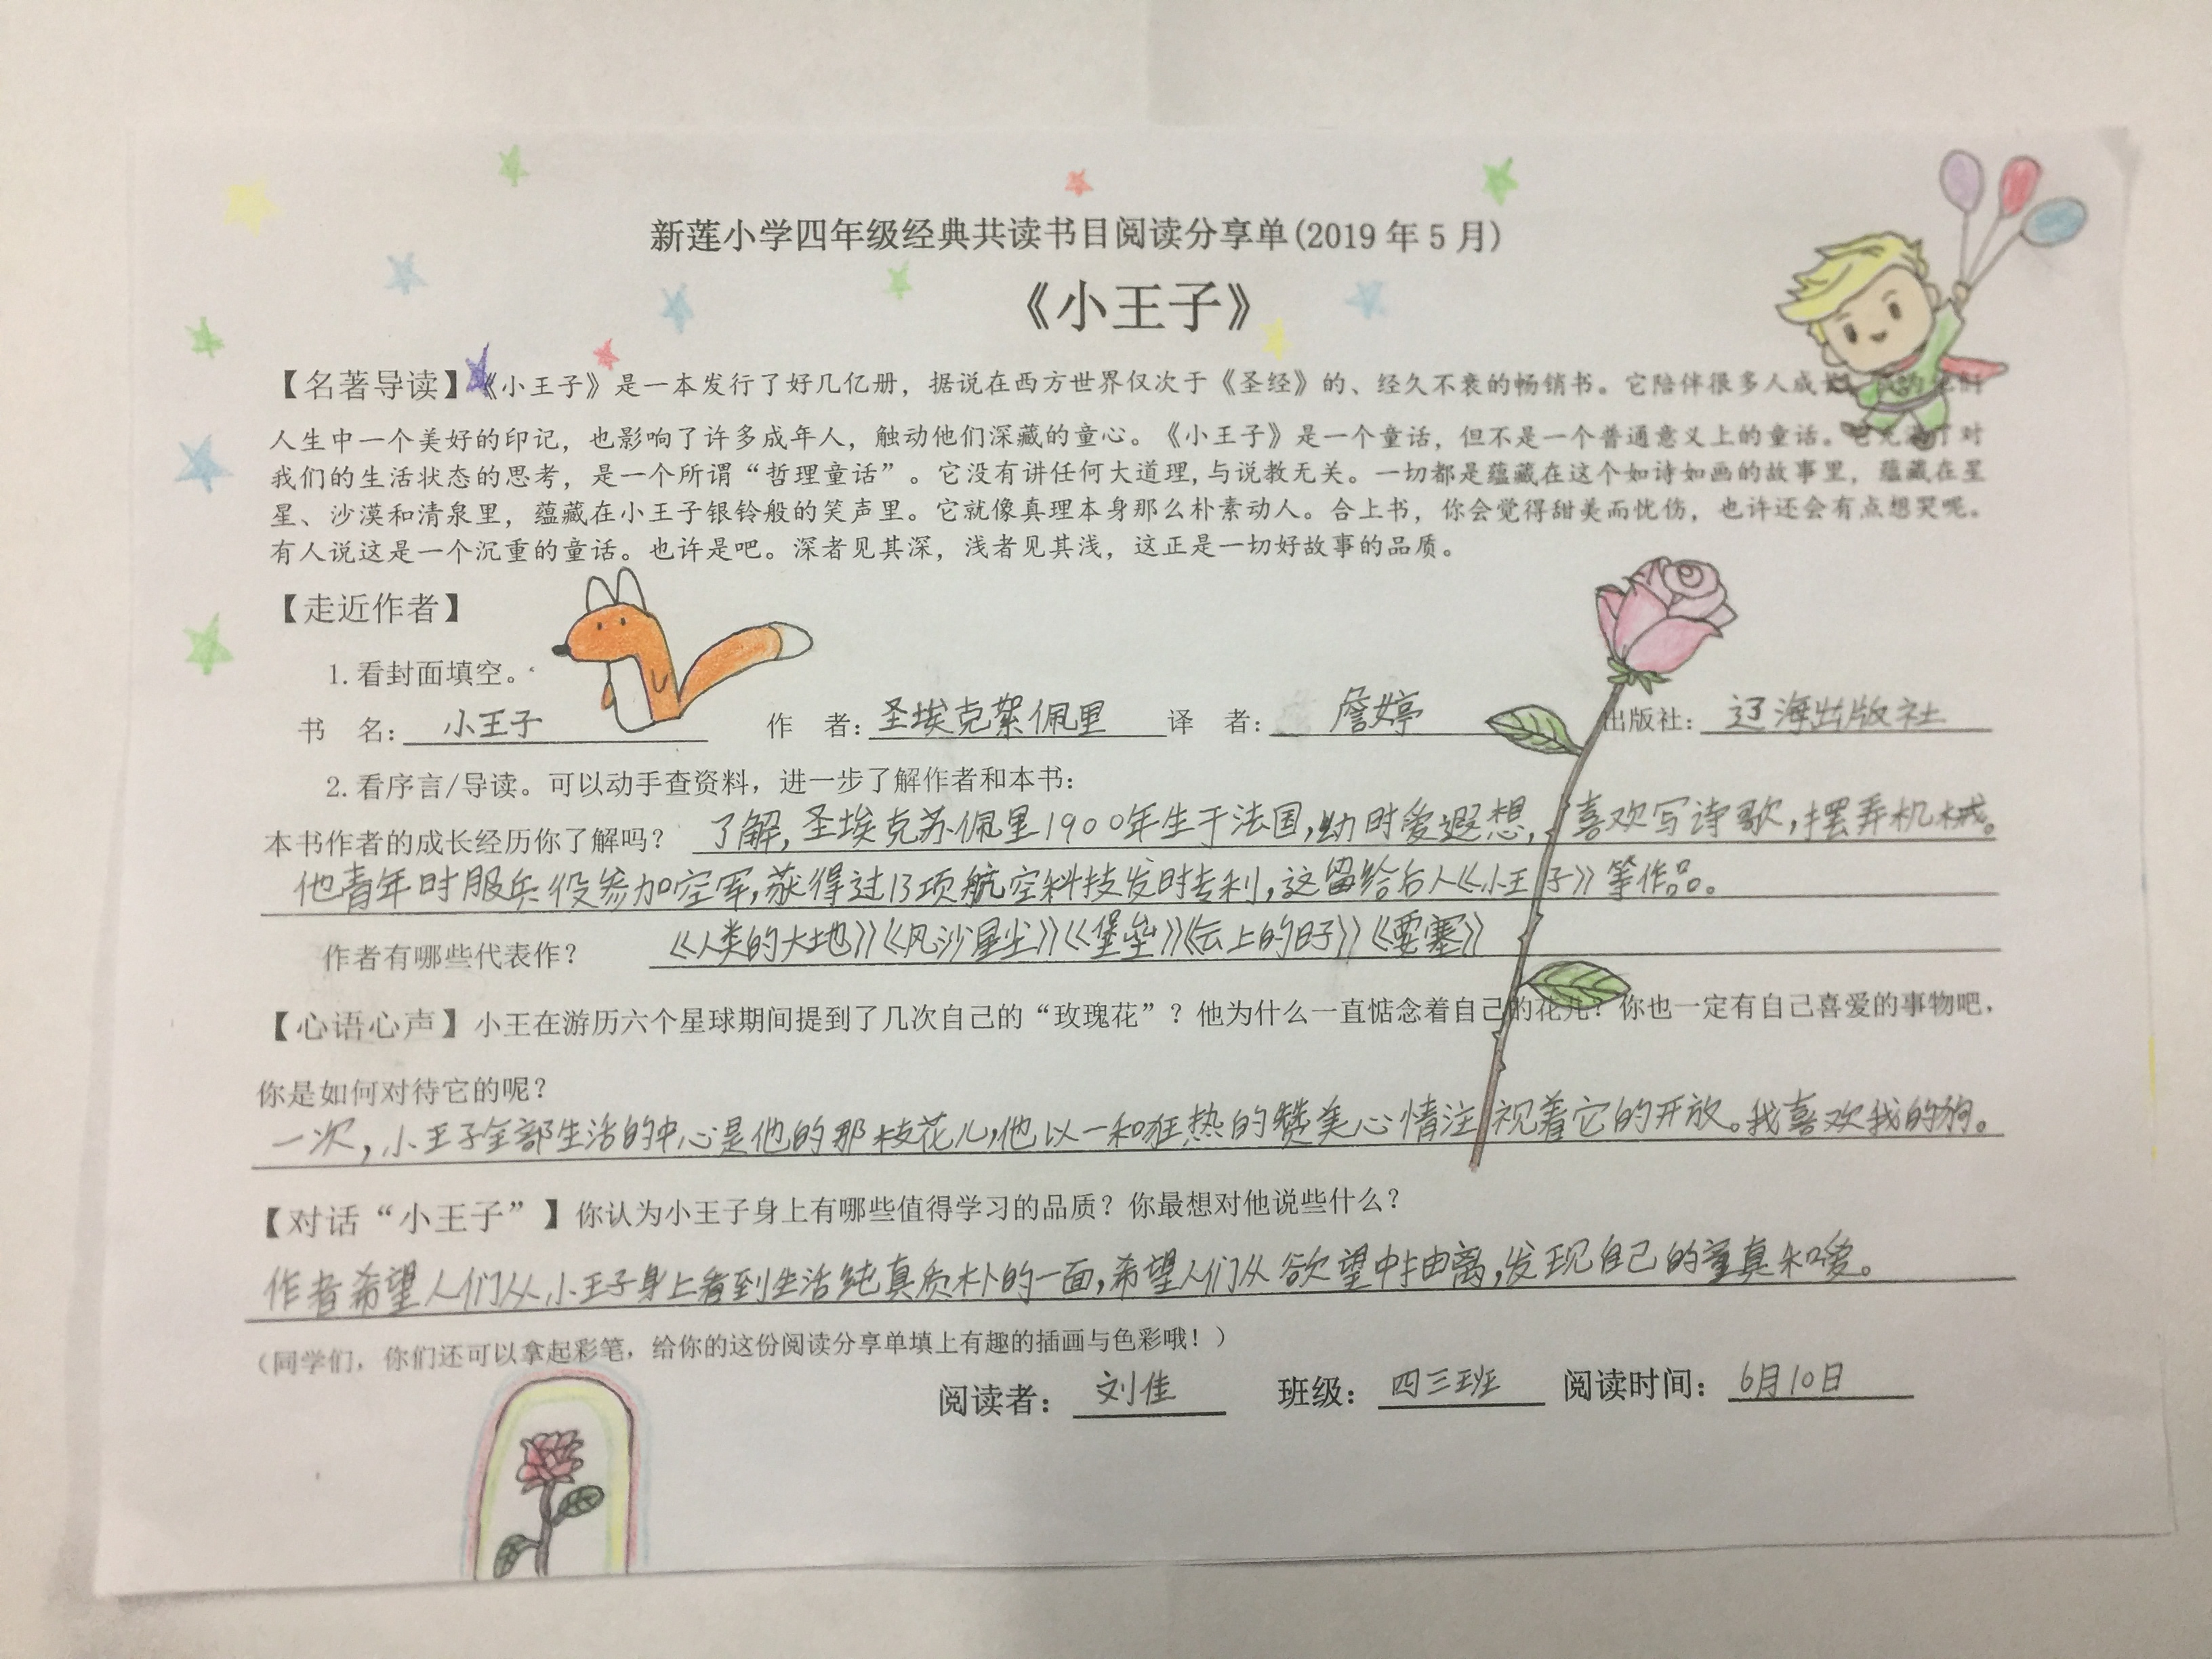 新莲小学四年级经典共读书目阅读分享单(2019年5月)
《小王子》
【名著导读】《小王子》是一本发行了好几亿册，据说在西方世界仅次于《圣经》的、经久不衰的畅销书。它陪伴很多人成
人生中一个美好的印记，也影响了许多成年人，触动他们深藏的童心。《小王子》是一个童话，但不是一个普通意义上的童话。对
我们的生活状态的思考，是一个所谓“哲理童话”。它没有讲任何大道理,与说教无关。一切都是蕴藏在这个如诗如画的故事里，蕴藏在星
星、沙漠和清泉里，蕴藏在小王子银铃般的笑声里。它就像真理本身那么朴素动人。合上书，你会觉得甜美而忧伤，也许还会有点想哭呢。
有人说这是一个沉重的童话。也许是吧。深者见其深，浅者见其浅，这正是一切好故事的品质。
【走近作者】
1.看封面填空。
书 名：小王子 作 者：圣埃克絮佩里 译 者：詹婷 出版社：辽海出版社
2.看序言/导读。可以动手查资料，进一步了解作者和本书：
本书作者的成长经历你了解吗？ 了解，圣埃克苏佩里1900年生于法国，幼时爱遐想，喜欢写诗歌，摆弄机械。
他青年时服兵役参加空军，获得过13项航空科技发时专利，这留给后人《小王子》等作品。
作者有哪些代表作？ 《人类的大地》《风沙星尘》《堡垒》《云上的日子》《要塞》
【心语心声】小王在游历六个星球期间提到了几次自己的“玫瑰花”？他为什么一直惦念着自己的花儿？你也一定有自己喜爱的事物吧，
你是如何对待它的呢？
一次，小王子全部生活的中心是他的那枝花儿，他以一和狂热的赞美心情注视着它的开放。我喜欢我的狗。
【对话“小王子”】你认为小王子身上有哪些值得学习的品质？你最想对他说些什么？
作者希望人们从小王子身上看到生活纯真质朴的一面，希望人们从欲望中抽离，发现自己的童真和爱。
（同学们，你们还可以拿起彩笔，给你的这份阅读分享单填上有趣的插画与色彩哦！）
阅读者：刘佳 班级：四三班 阅读时间：6月10日